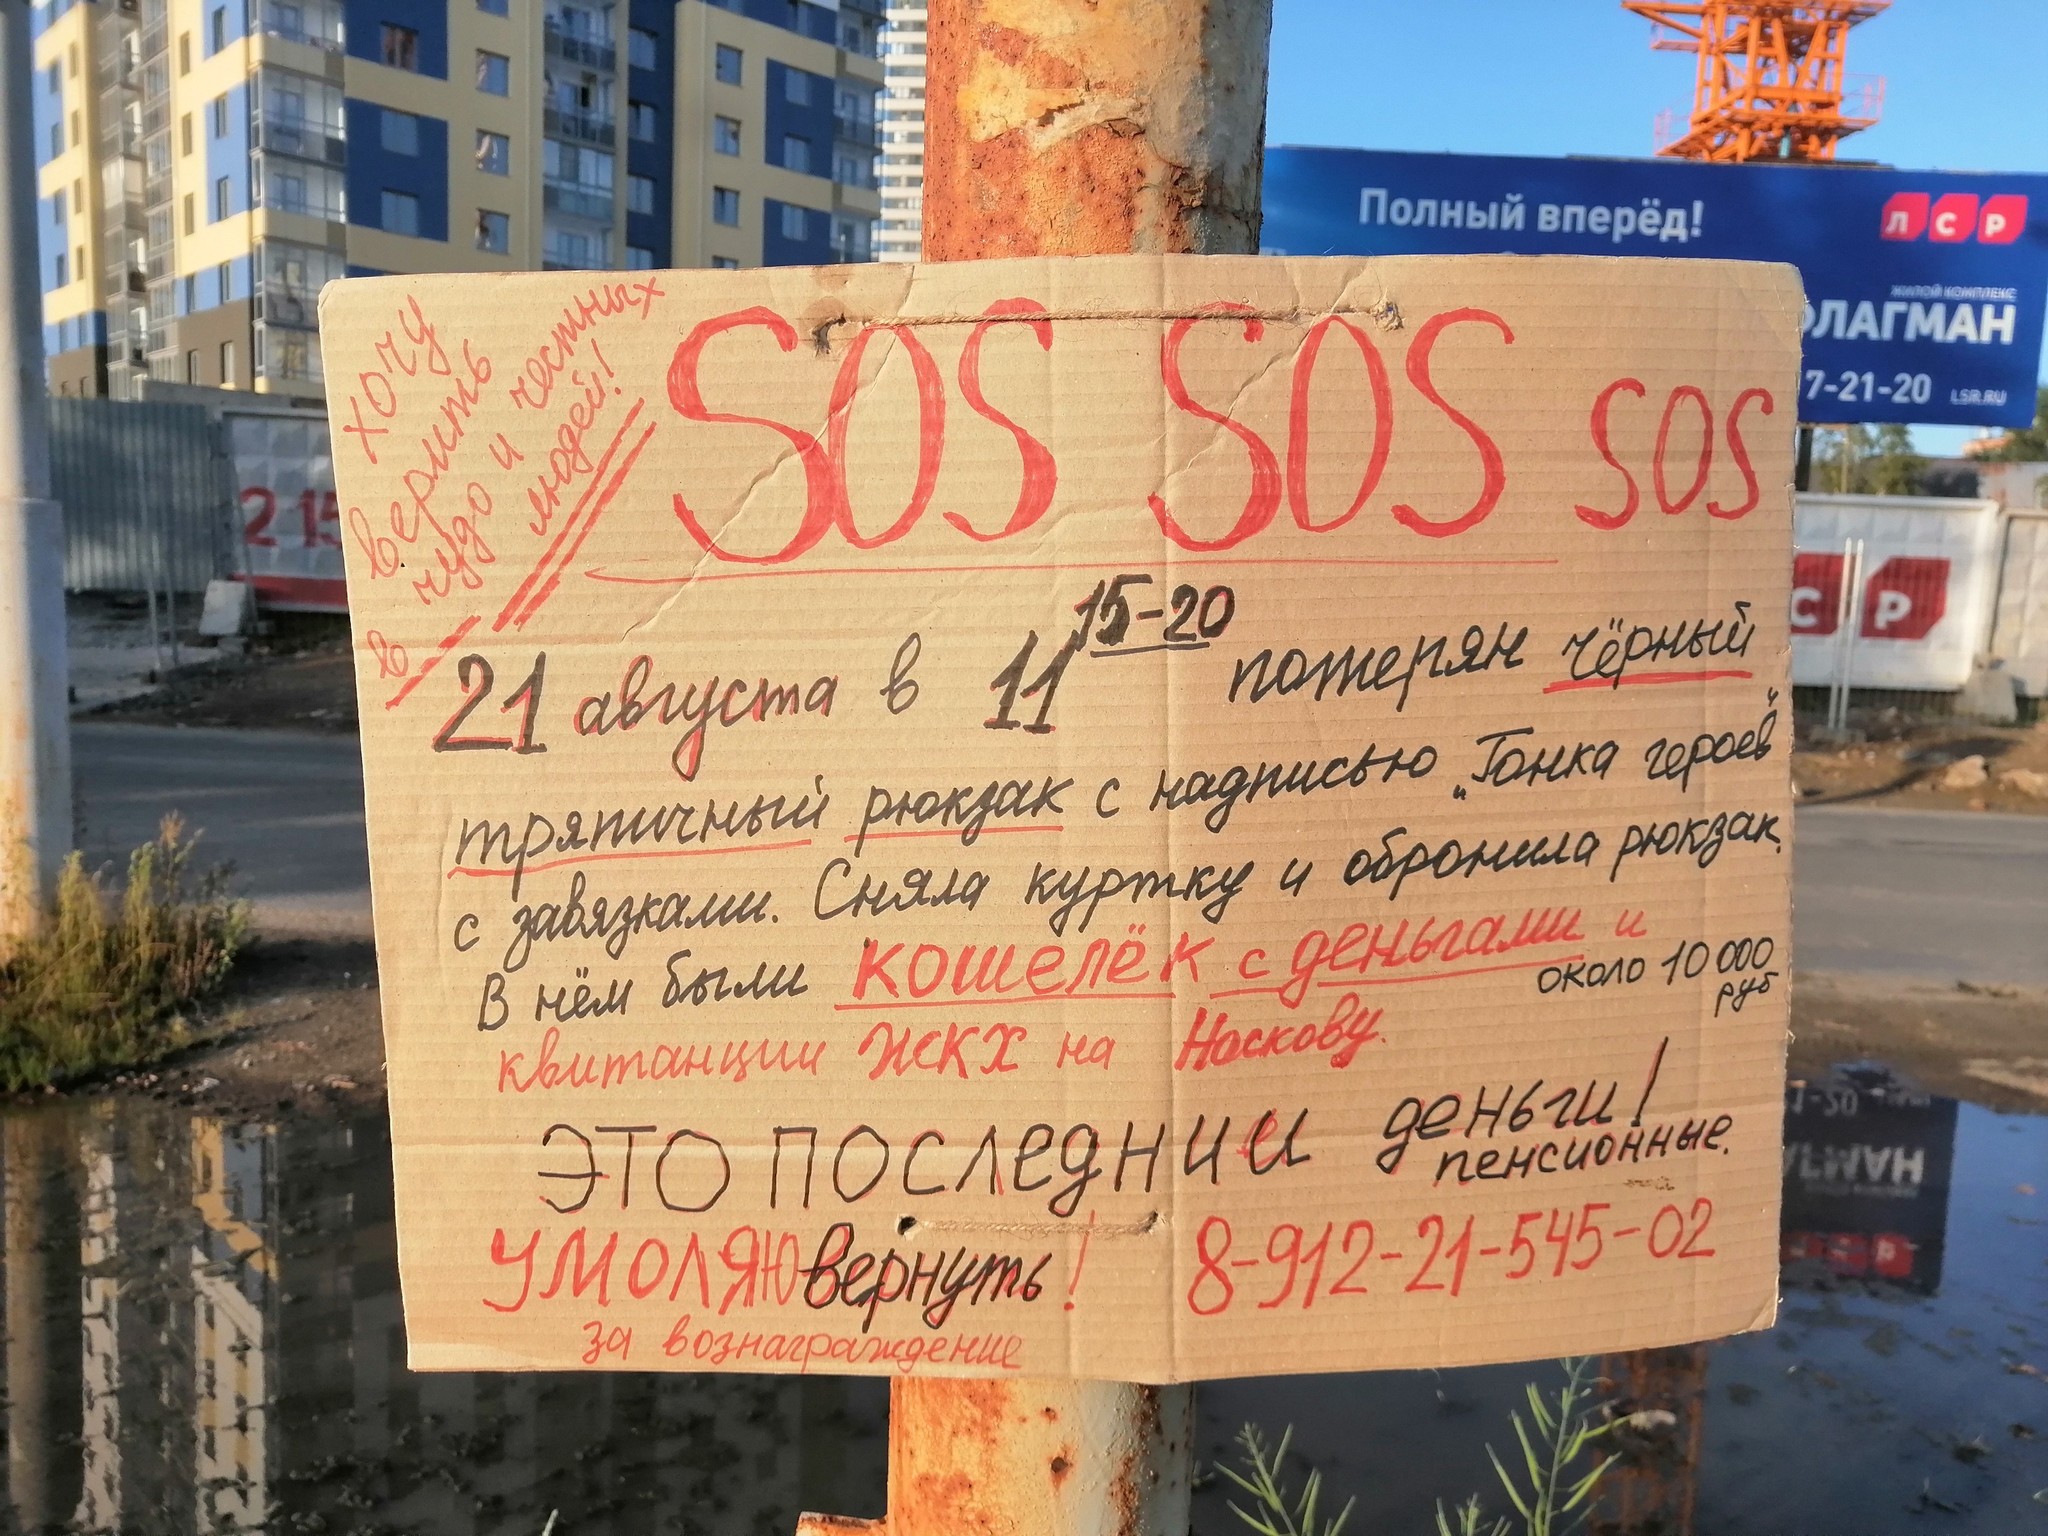 Полный вперёд!
ЛСР
ЖИЛОЙ КОМПЛЕКС
ФЛАГМАН
7-21-20 LSR.RU
2 15
СР
хочу
верить
в чудо и честных
людей!
SOS SOS SOS
21 августа в 11 15-20 потерян чёрный
тряпичный рюкзак с надписью „Гонка героев"
с завязками. Сняла куртку и обронила рюкзак.
В нём были кошелёк с деньгами и
около 10 000
руб
квитанции ЖКХ на Носкову.
ЭТО ПОСЛЕДНИИ деньги!
пенсионные.
УМОЛЯЮ вернуть! 8-912-21-545-02
за вознаграждение